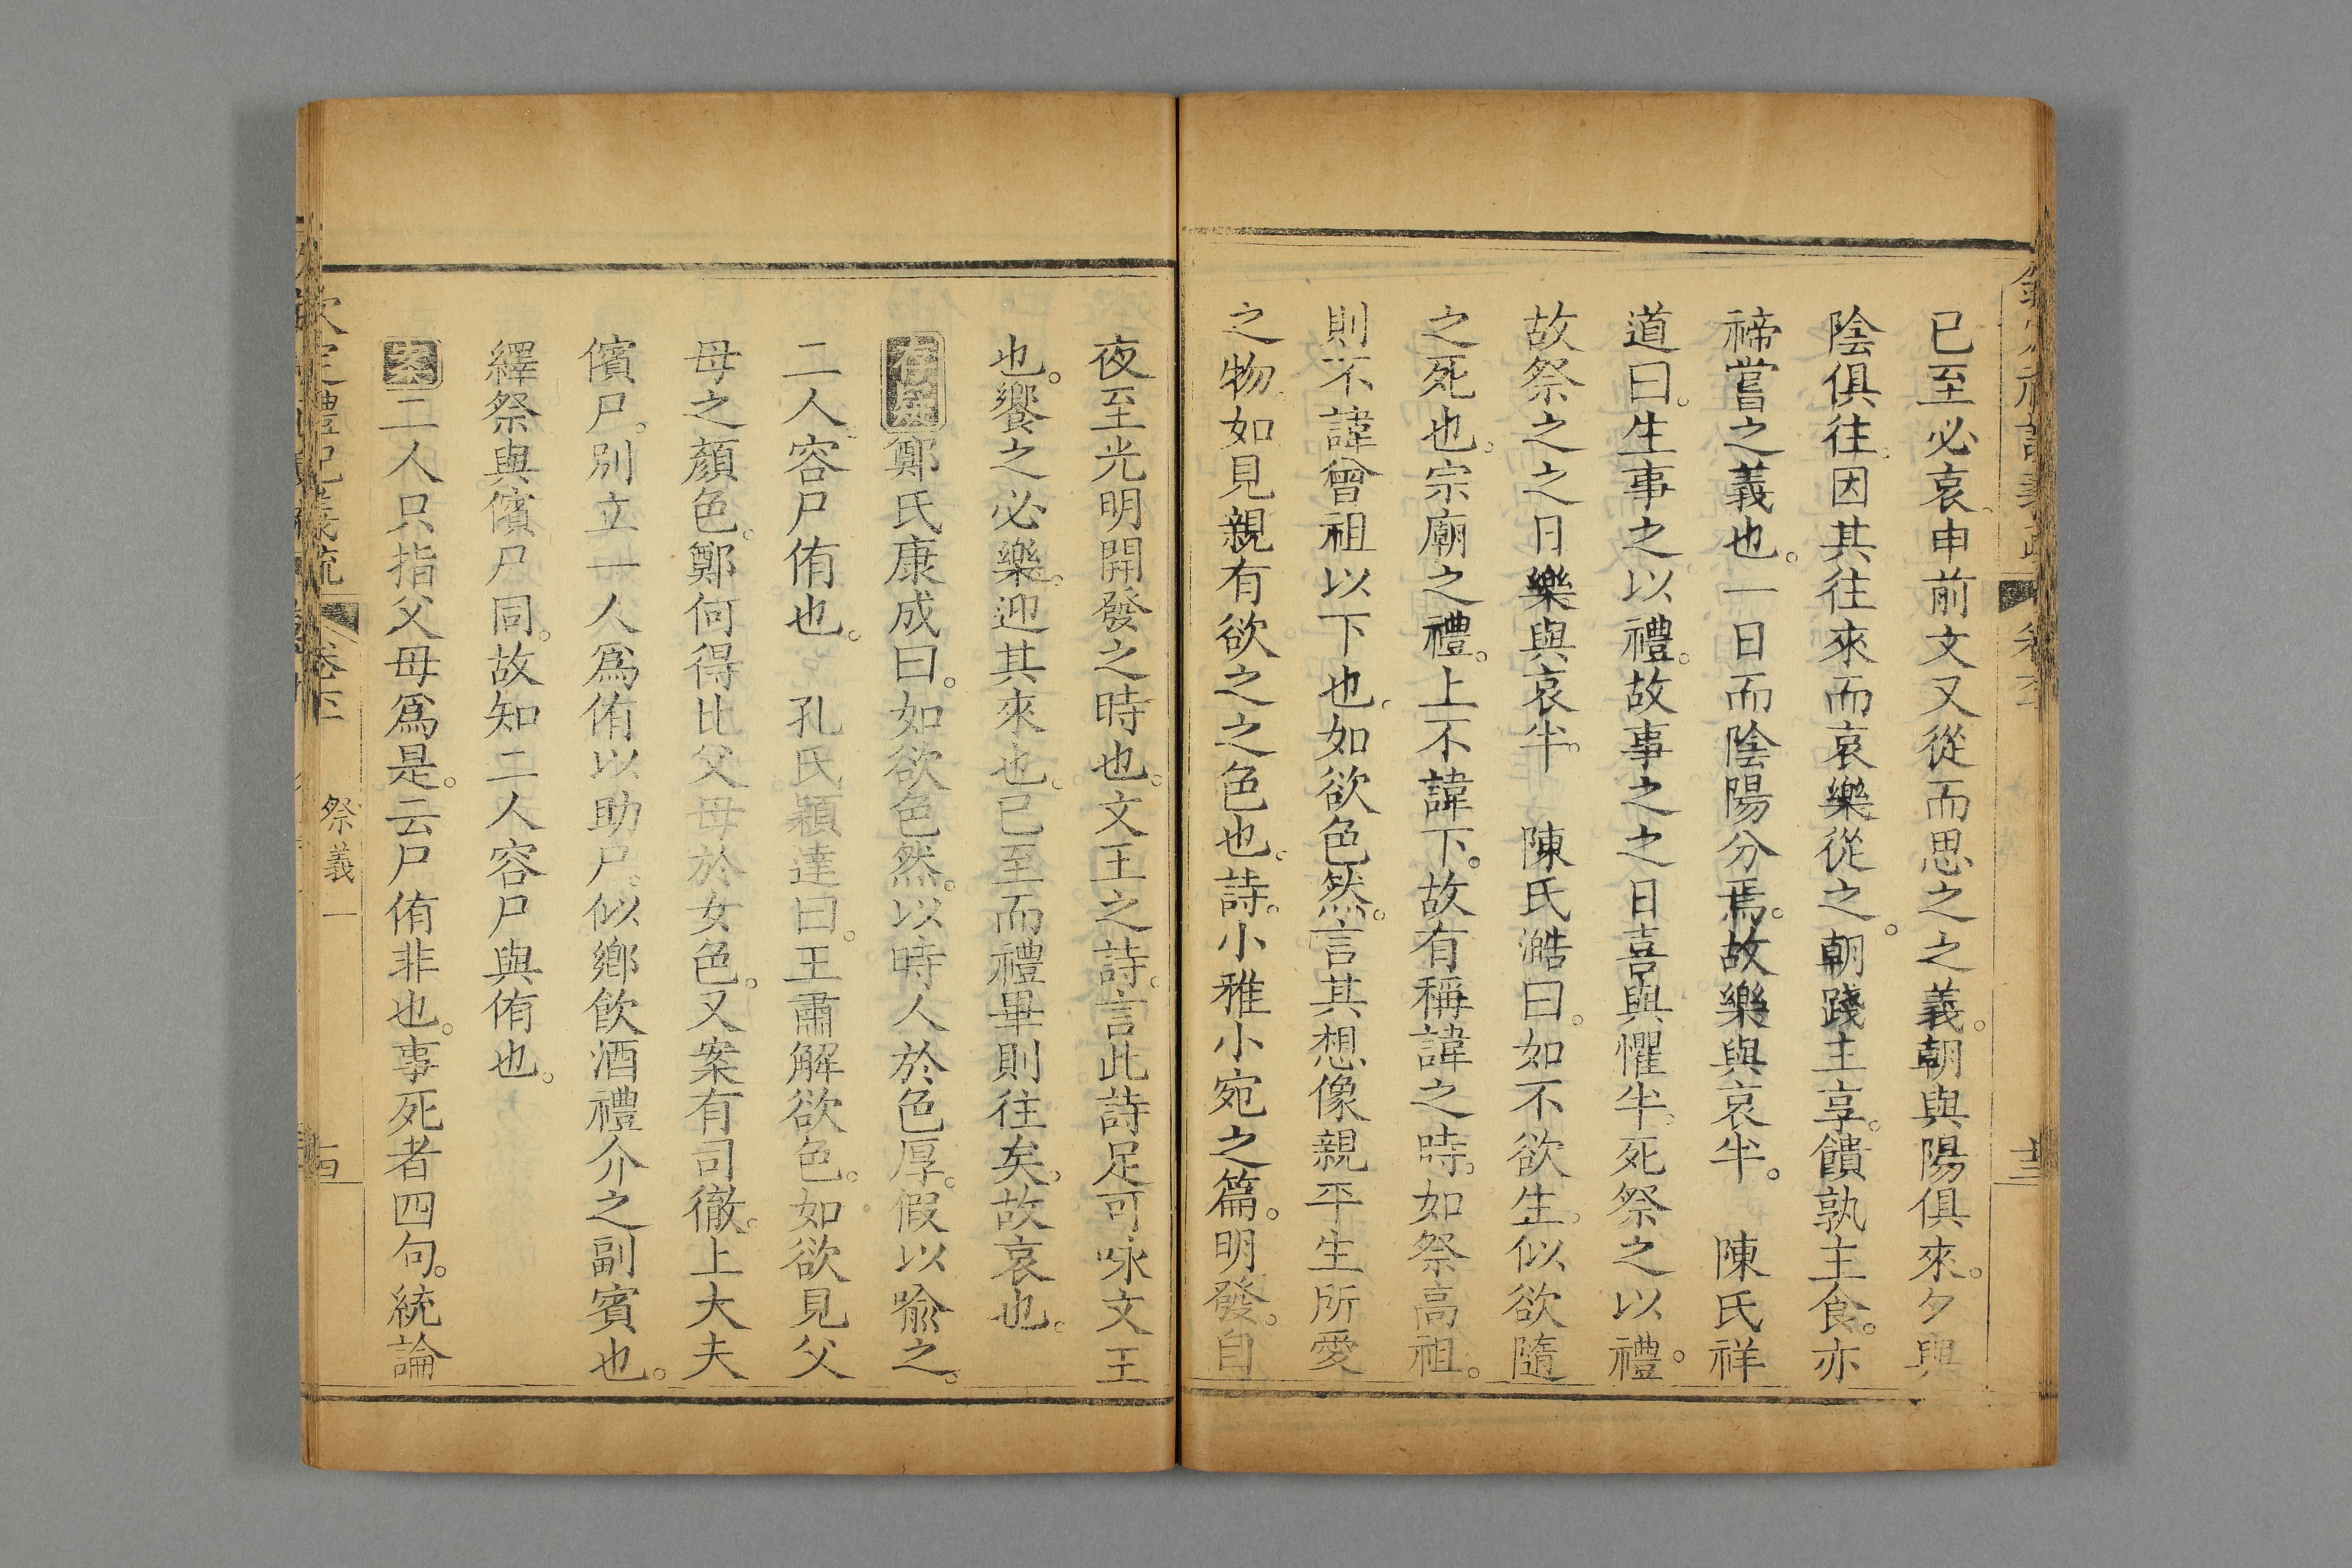 已至必哀申前文又從而思之之義。朝與陽俱來。夕與
陰俱往。因其往來而哀樂從之。朝踐主享。饋孰主食。亦
禘嘗之義也。一日而陰陽分焉。故樂與哀半。　陳氏祥
道曰。生事之以禮。故事之之日喜與懼半。死祭之以禮。
故祭之之日樂與哀半。　陳氏澔曰。如不欲生。似欲隨
之死也。宗廟之禮。上不諱下。故有稱諱之時。如祭高祖。
則不諱曾祖以下也。如欲色然。言其想像親平生所愛
之物。如見親有欲之之色也。詩。小雅小宛之篇。明發。自
夜至光明開發之時也。文王之詩。言此詩足可咏文王
也。饗之必樂。迎其來也。已至而禮畢則往矣。故哀也。
存疑鄭氏康成曰。如欲色然。以時人於色厚。假以喻之。
二人容尸侑也。　孔氏穎達曰。王肅解欲色。如欲見父
母之顏色。鄭何得比父母於女色。又案有司徹。上大夫
儐尸。別立一人爲侑以助尸。似鄉飲酒禮介之副賓也。
繹祭與儐尸同。故知二人容尸與侑也。
案二人只指父母爲是。云尸侑非也。事死者四句。統論
欽定禮記義疏
祭義一